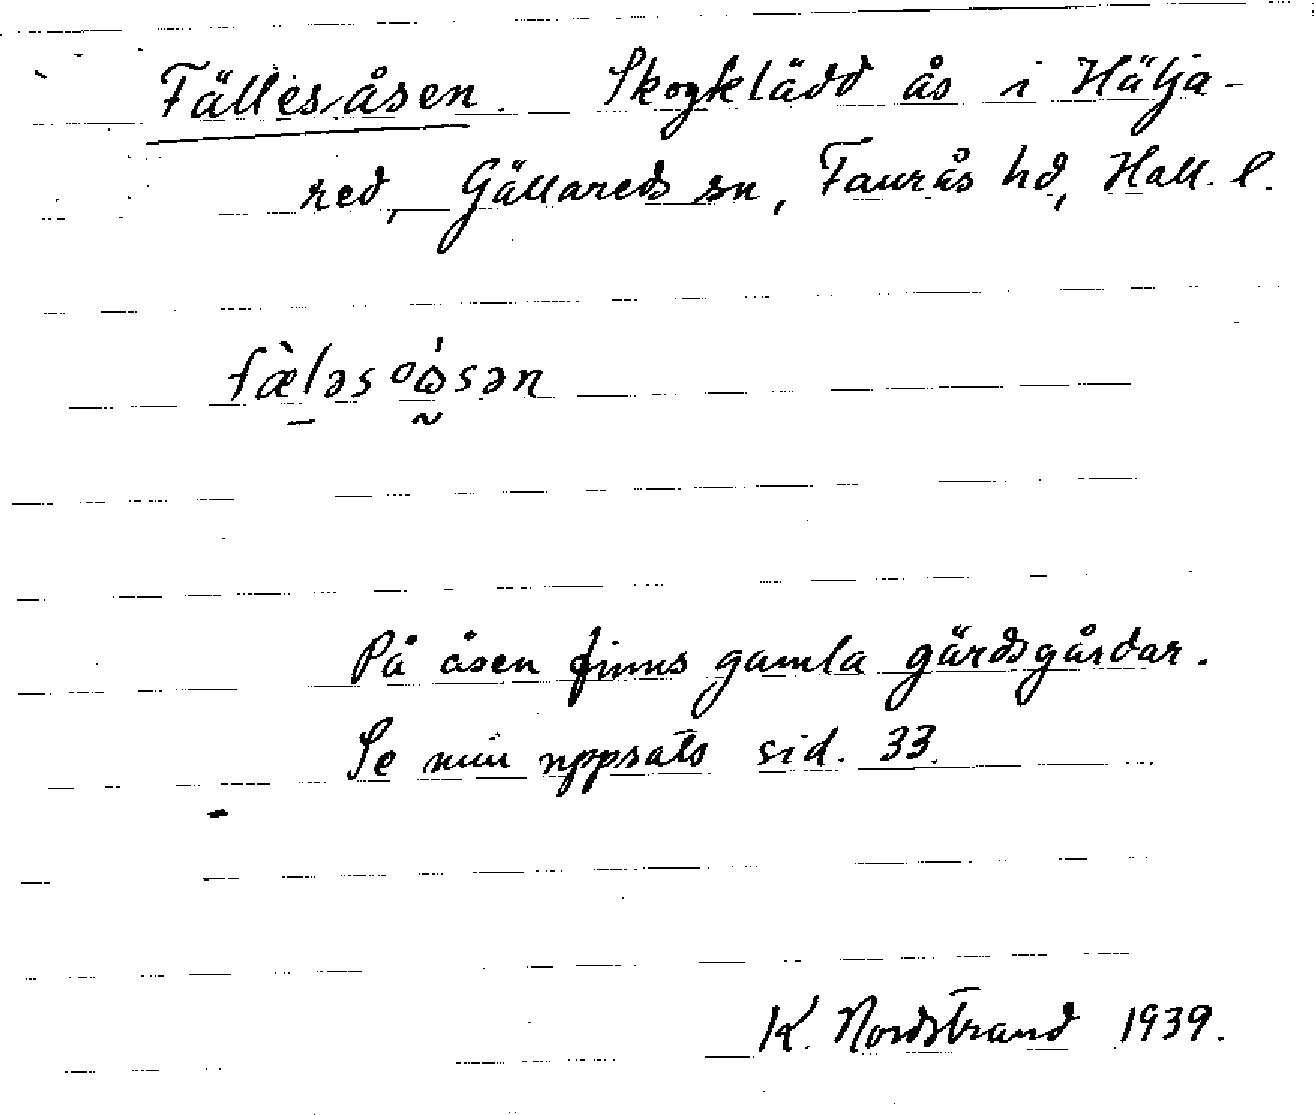 Fällesåsen. Skogklädd ås i Hälja-
red, Gällareds sn, Faurås hd, Hall. l.
fæ̀ləsºω̊́sən
På åsen finns gamla gärdsgårdar.
Se min uppsats sid. 33.
K. Nordstrand 1939.